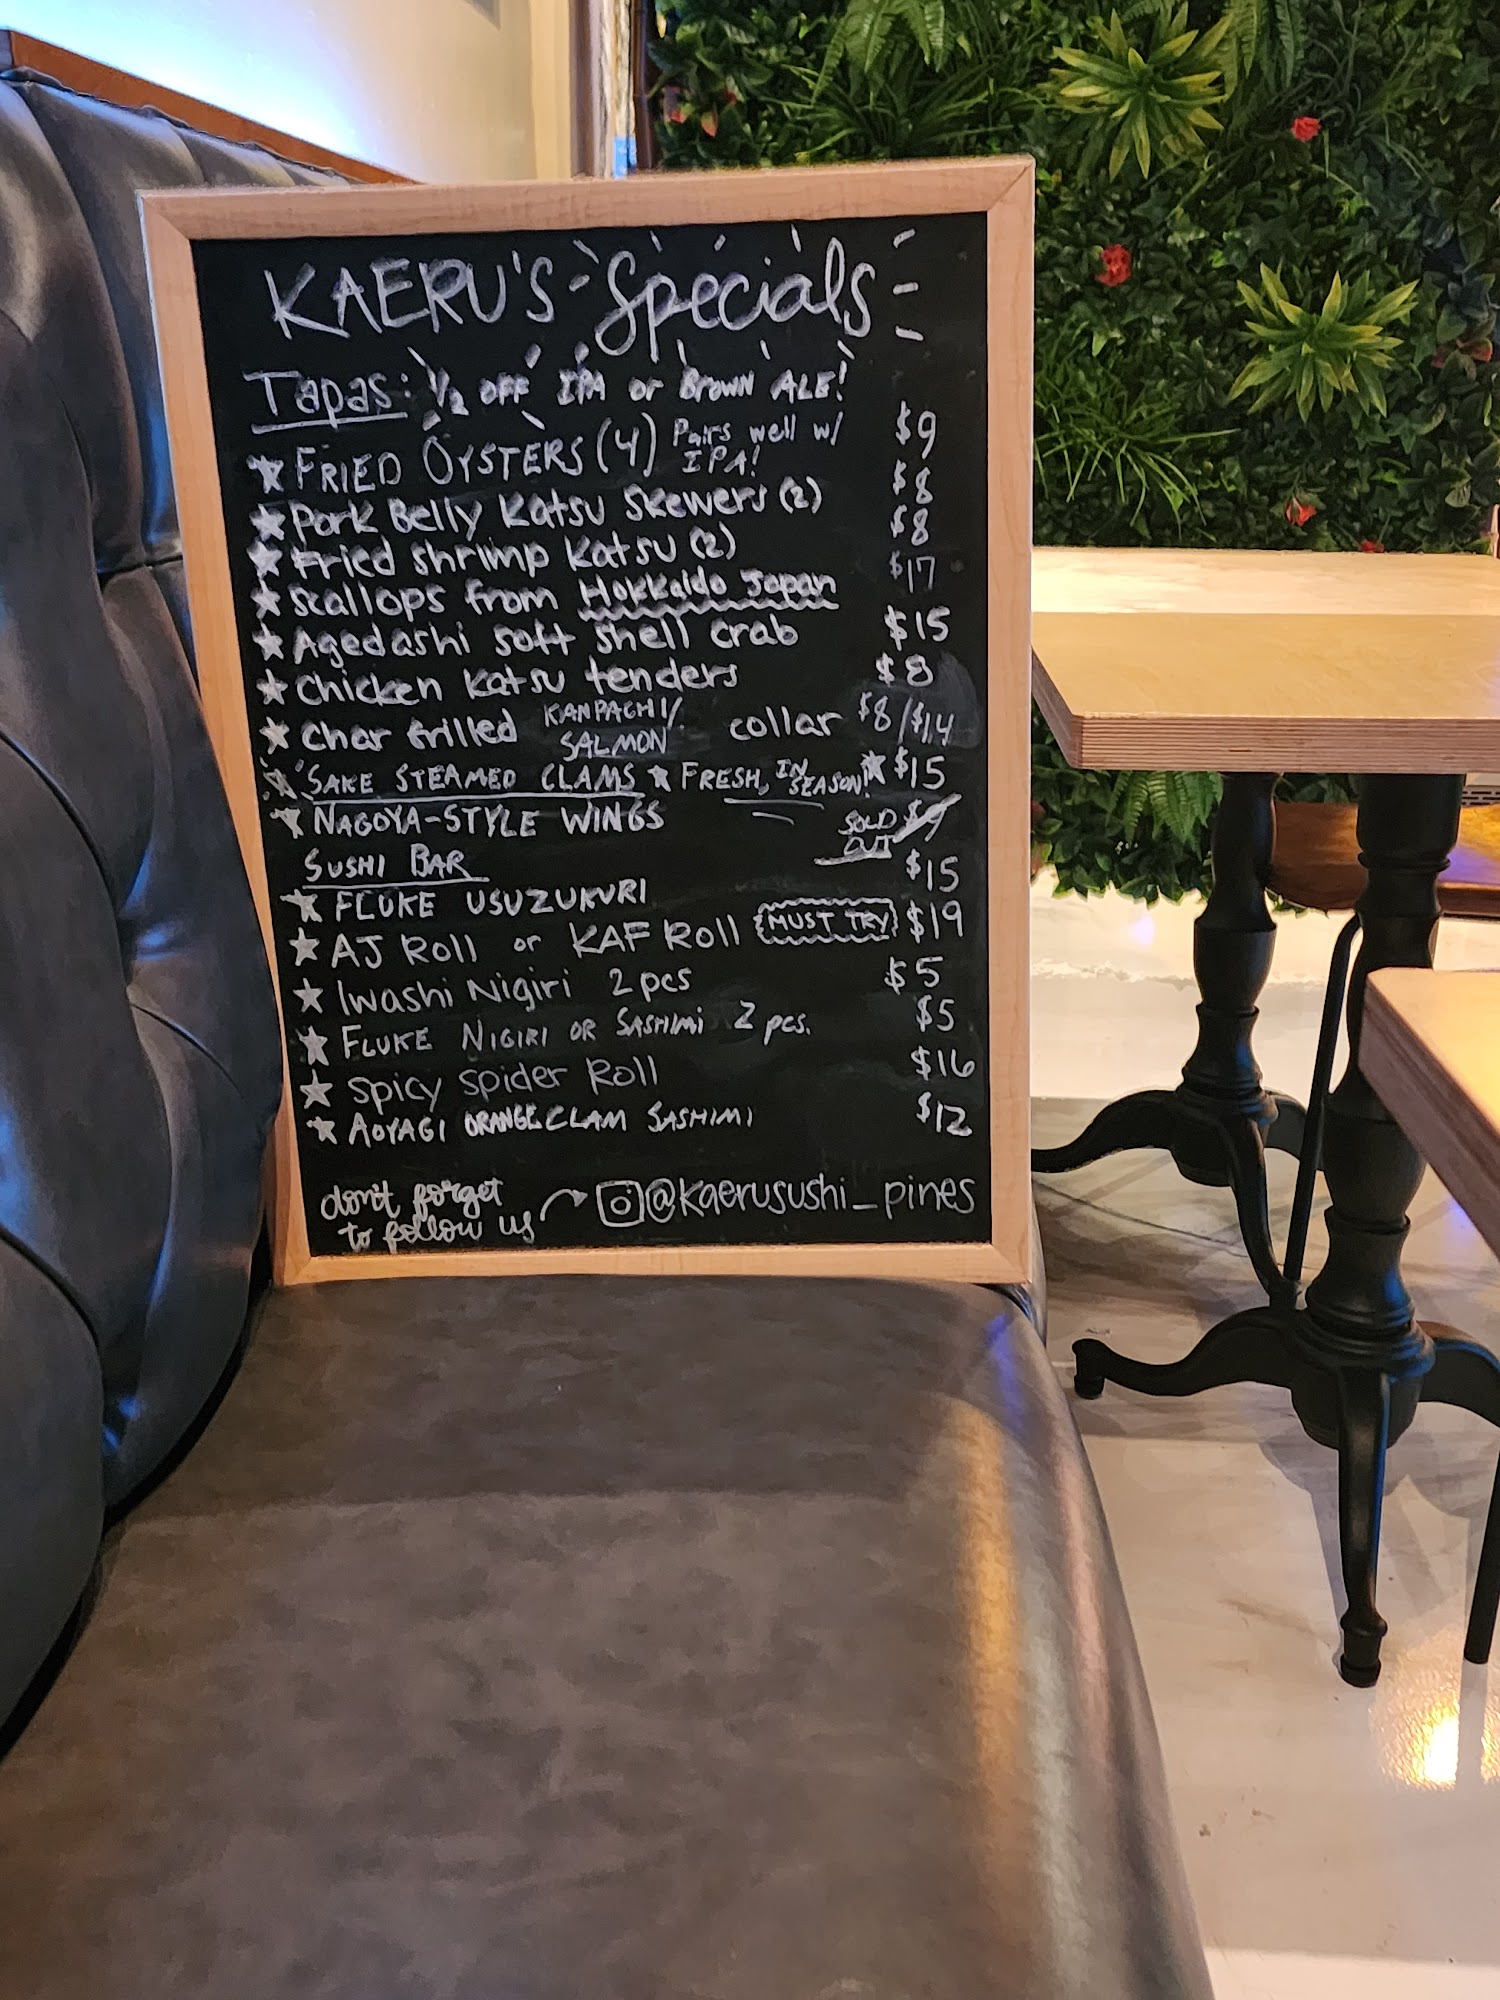 KAERU'S Specials
Tapas: 1/2 OFF IPA or Brown ALE!
★ FRIED OYSTERS (4) Pairs well w/ IPA! $9
★ Pork Belly Katsu Skewers (2) $8
★ Fried Shrimp Katsu (2) $8
★ Scallops from Hokkaido Japan $17
★ Agedashi soft shell crab $15
★ Chicken Katsu tenders $8
★ Char Grilled KANPACHI/SALMON collar $8/$14
★ SAKE STEAMED CLAMS ★ FRESH, IN SEASON! ★ $15
★ NAGOYA-STYLE WINGS SOLD OUT $9
SUSHI BAR
★ FLUKE USUZUKURI $15
★ AJ Roll or KAF Roll MUST TRY $19
★ Iwashi Nigiri 2 pcs $5
★ FLUKE NIGIRI OR SASHIMI 2 pcs. $5
★ Spicy Spider Roll $16
★ AOYAGI ORANGE CLAM SASHIMI $12
don't forget to follow us @kaerusushi_pines